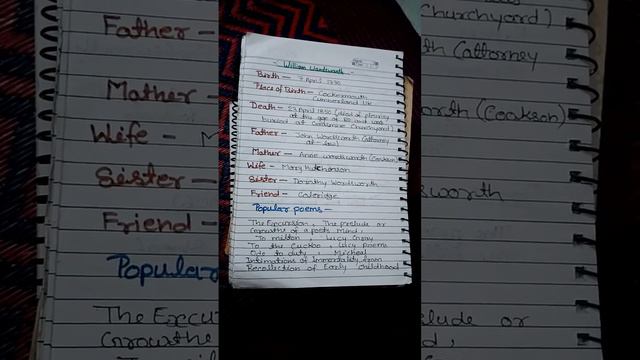 William Wordsworth
Birth - 7 April 1770
Place of Birth - Cockermouth
Cumberland UK
Death - 23 April 1850 (died of pleurisy
at the age of 80 and was
buried at Churchyard)
Father - John Wordsworth (attorney
at law)
Mother - Anne Wordsworth (Cookson)
Wife - Mary Hutchinson
Sister - Dorothy Wordsworth
Friend - Coleridge
Popular poems -
The Excursion, The prelude or
Growths of a poets mind,
To milton, Lucy Gray
To the Cuckoo, Lucy poems
Ode to duty, Micheal
Intimations of Immortality from
Recollection of Early childhood
Father -
Mother -
Wife - M
Sister -
Friend -
Popular
The Excur
Growthe
Churchyard)
th (attorney
orth (Cookson)
sworth
lude or
d,